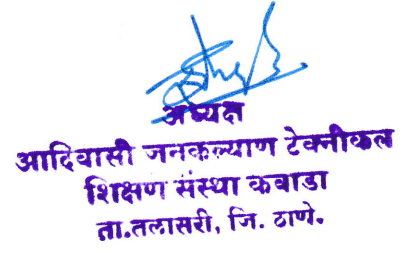 अध्यक्ष
आदिवासी जनकल्याण टेक्नीकल
शिक्षण संस्था कवाडा
ता.तलासरी, जि. ठाणे.